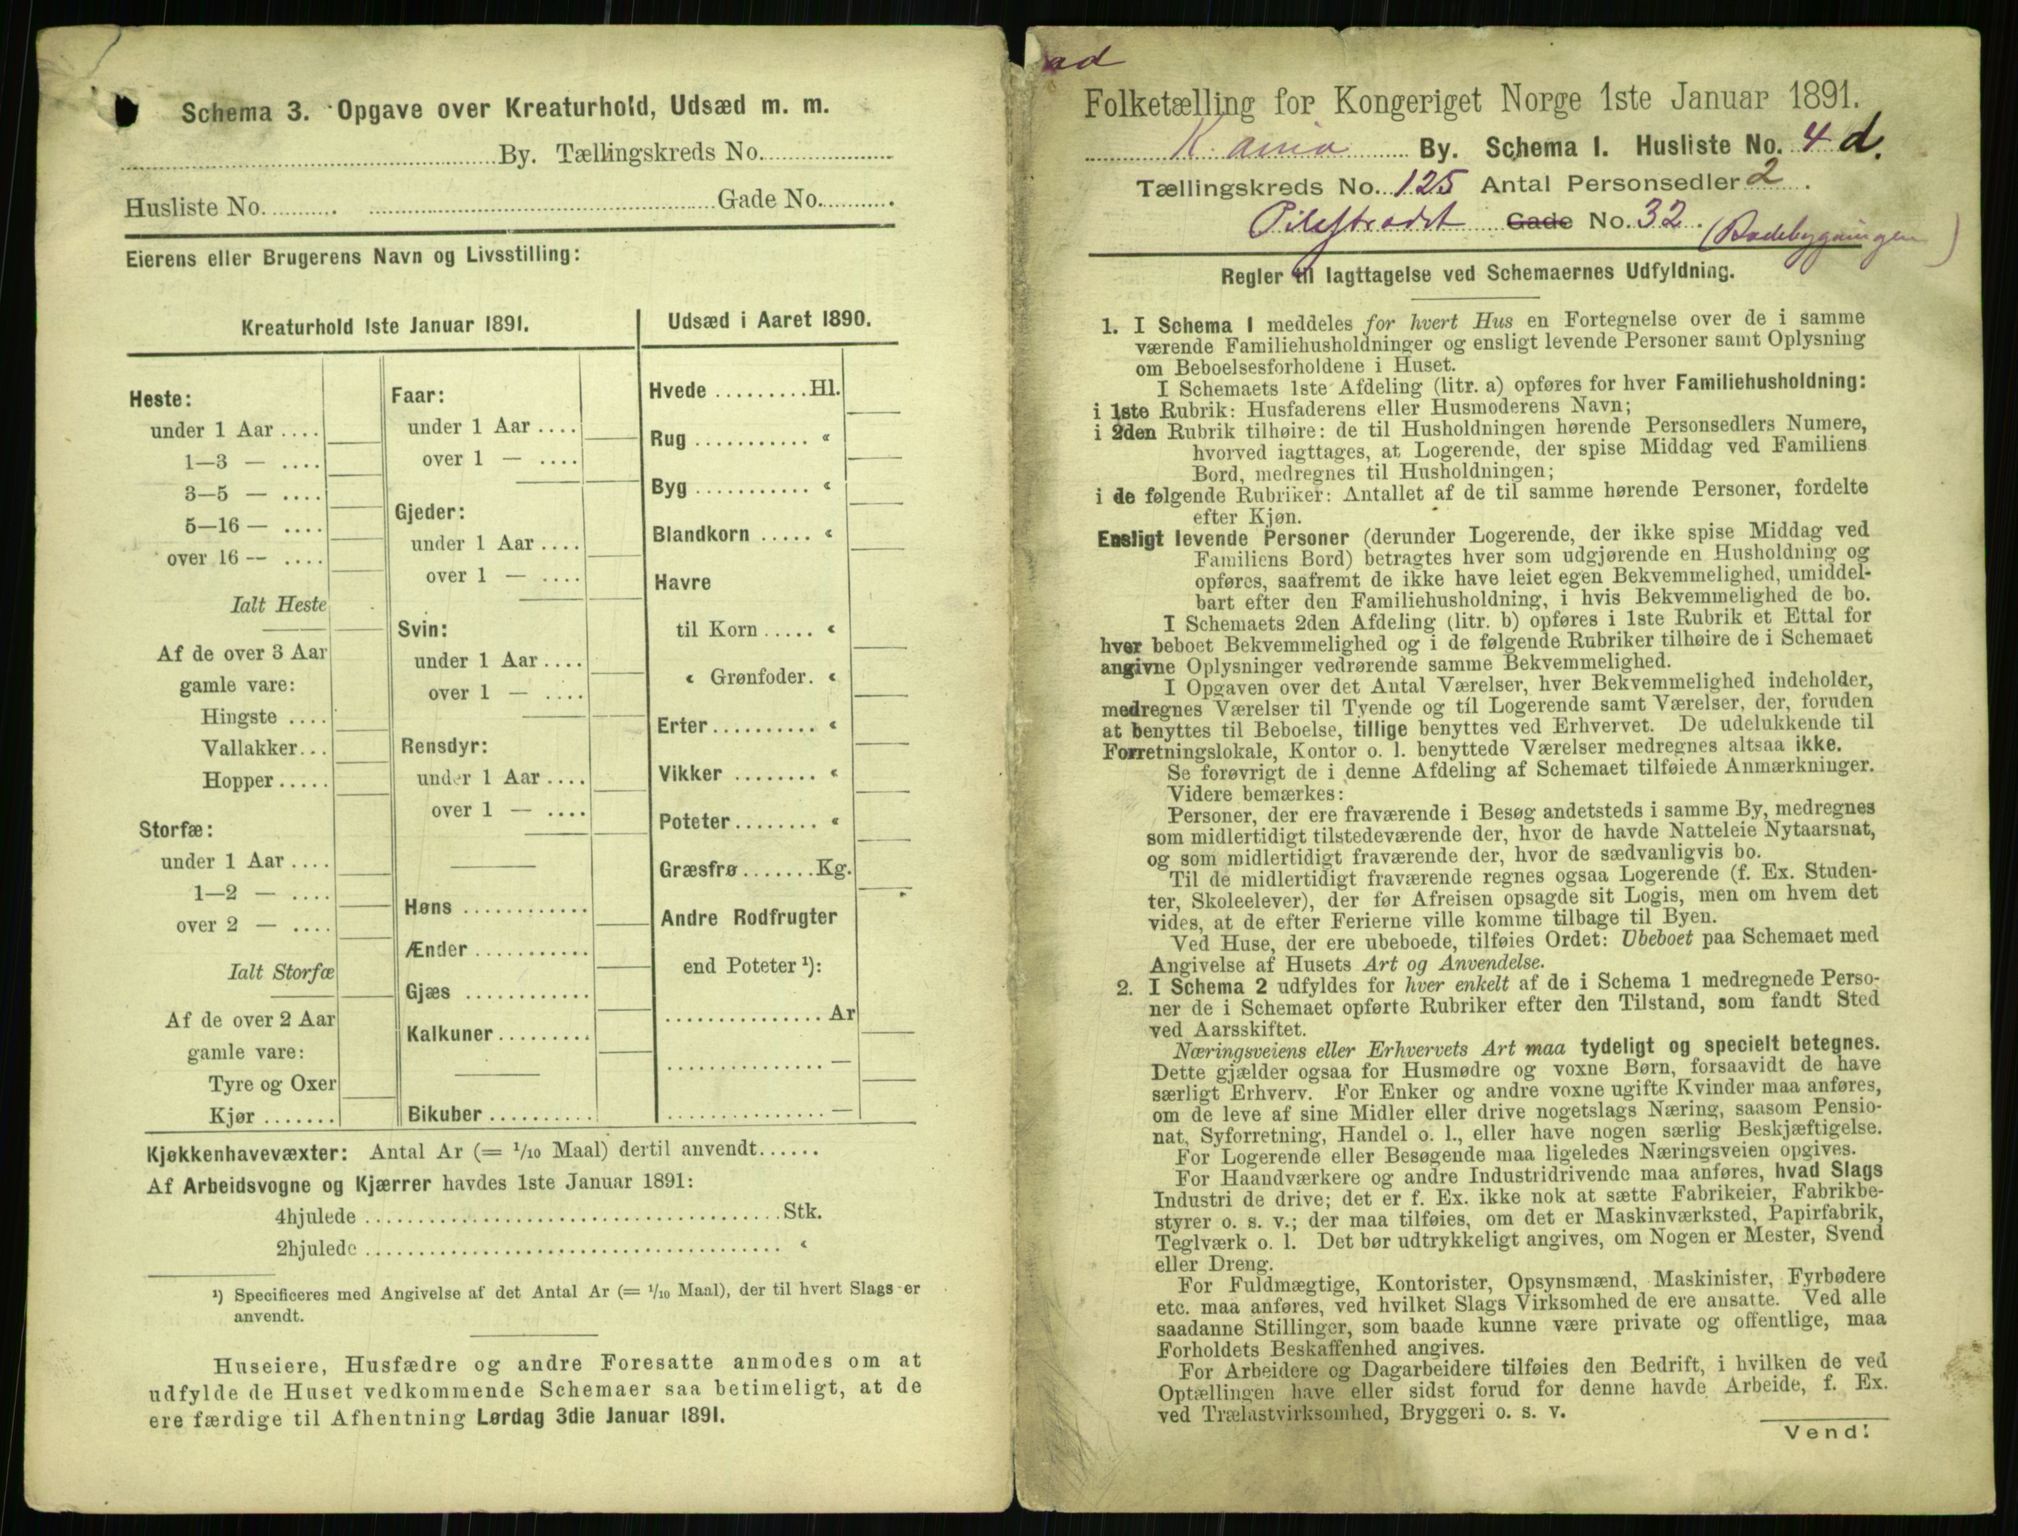 Schema 3. Opgave over Kreaturhold, Udsæd m. m.
By. Tællingskreds No.
Husliste No. Gade No.
Eierens eller Brugerens Navn og Livsstilling:
Kreaturhold 1ste Januar 1891.
Heste:
under 1 Aar
1—3 —
3—5 —
5—16 —
over 16 —
Ialt Heste
Af de over 3 Aar
gamle vare:
Hingste
Vallakker
Hopper
Storfæ:
under 1 Aar
1—2 —
over 2 —
Ialt Storfæ
Af de over 2 Aar
gamle vare:
Tyre og Oxer
Kjør
Faar:
under 1 Aar
over 1 —
Gjeder:
under 1 Aar
over 1 —
Svin:
under 1 Aar
over 1 —
Rensdyr:
under 1 Aar
over 1 —
Høns
Ænder
Gjæs
Kalkuner
Bikuber
Udsæd i Aaret 1890.
Hvede Hl.
Rug «
Byg «
Blandkorn «
Havre
til Korn «
« Grønfoder. «
Erter «
Vikker «
Poteter «
Græsfrø Kg.
Andre Rodfrugter
end Poteter ¹):
Ar
—
—
Kjøkkenhavevæxter: Antal Ar (= 1/10 Maal) dertil anvendt
Af Arbeidsvogne og Kjærrer havdes 1ste Januar 1891:
4hjulede Stk.
2hjulede «
¹) Specificeres med Angivelse af det Antal Ar (= 1/10 Maal), der til hvert Slags er
anvendt.
Huseiere, Husfædre og andre Foresatte anmodes om at
udfylde de Huset vedkommende Schemaer saa betimeligt, at de
ere færdige til Afhentning Lørdag 3die Januar 1891.
ad
Folketælling for Kongeriget Norge 1ste Januar 1891.
K.ania By. Schema 1. Husliste No. 4 d.
Tællingskreds No. 125 Antal Personsedler 2
Pilestrædet Gade No. 32 (Badebygningen)
Regler til Iagttagelse ved Schemaernes Udfyldning.
1. I Schema 1 meddeles for hvert Hus en Fortegnelse over de i samme
værende Familiehusholdninger og ensligt levende Personer samt Oplysning
om Beboelsesforholdene i Huset.
I Schemaets 1ste Afdeling (litr. a) opføres for hver Familiehusholdning:
i 1ste Rubrik: Husfaderens eller Husmoderens Navn;
i 2den Rubrik tilhøire: de til Husholdningen hørende Personsedlers Numere,
hvorved iagttages, at Logerende, der spise Middag ved Familiens
Bord, medregnes til Husholdningen;
i de følgende Rubriker: Antallet af de til samme hørende Personer, fordelte
efter Kjøn.
Ensligt levende Personer (derunder Logerende, der ikke spise Middag ved
Familiens Bord) betragtes hver som udgjørende en Husholdning og
opføres, saafremt de ikke have leiet egen Bekvemmelighed, umiddel-
bart efter den Familiehusholdning, i hvis Bekvemmelighed de bo.
I Schemaets 2den Afdeling (litr. b) opføres i 1ste Rubrik et Ettal for
hver beboet Bekvemmelighed og i de følgende Rubriker tilhøire de i Schemaet
angivne Oplysninger vedrørende samme Bekvemmelighed.
I Opgaven over det Antal Værelser, hver Bekvemmelighed indeholder,
medregnes Værelser til Tyende og til Logerende samt Værelser, der, foruden
at benyttes til Beboelse, tillige benyttes ved Erhvervet. De udelukkende til
Forretningslokale, Kontor o. l. benyttede Værelser medregnes altsaa ikke.
Se forøvrigt de i denne Afdeling af Schemaet tilføiede Anmærkninger.
Videre bemærkes:
Personer, der ere fraværende i Besøg andetsteds i samme By, medregnes
som midlertidigt tilstedeværende der, hvor de havde Natteleie Nytaarsnat,
og som midlertidigt fraværende der, hvor de sædvanligvis bo.
Til de midlertidigt fraværende regnes ogsaa Logerende (f. Ex. Studen-
ter, Skoleelever), der før Afreisen opsagde sit Logis, men om hvem det
vides, at de efter Ferierne ville komme tilbage til Byen.
Ved Huse, der ere ubeboede, tilføies Ordet: Ubeboet paa Schemaet med
Angivelse af Husets Art og Anvendelse.
2. I Schema 2 udfyldes for hver enkelt af de i Schema 1 medregnede Perso-
ner de i Schemaet opførte Rubriker efter den Tilstand, som fandt Sted
ved Aarsskiftet.
Næringsveiens eller Erhvervets Art maa tydeligt og specielt betegnes.
Dette gjælder ogsaa for Husmødre og voxne Børn, forsaavidt de have
særligt Erhverv. For Enker og andre voxne ugifte Kvinder maa anføres,
om de leve af sine Midler eller drive nogetslags Næring, saasom Pensio-
nat, Syforretning, Handel o. l., eller have nogen særlig Beskjæftigelse.
For Logerende eller Besøgende maa ligeledes Næringsveien opgives.
For Haandværkere og andre Industridrivende maa anføres, hvad Slags
Industri de drive; det er f. Ex. ikke nok at sætte Fabrikeier, Fabrikbe-
styrer o. s. v.; der maa tilføies, om det er Maskinværksted, Papirfabrik,
Teglværk o. l. Det bør udtrykkeligt angives, om Nogen er Mester, Svend
eller Dreng.
For Fuldmægtige, Kontorister, Opsynsmænd, Maskinister, Fyrbødere
etc. maa anføres, ved hvilket Slags Virksomhed de ere ansatte. Ved alle
saadanne Stillinger, som baade kunne være private og offentlige, maa
Forholdets Beskaffenhed angives.
For Arbeidere og Dagarbeidere tilføies den Bedrift, i hvilken de ved
Optællingen have eller sidst forud for denne havde Arbeide, f. Ex.
ved Trælastvirksomhed, Bryggeri o. s. v.
Vend!